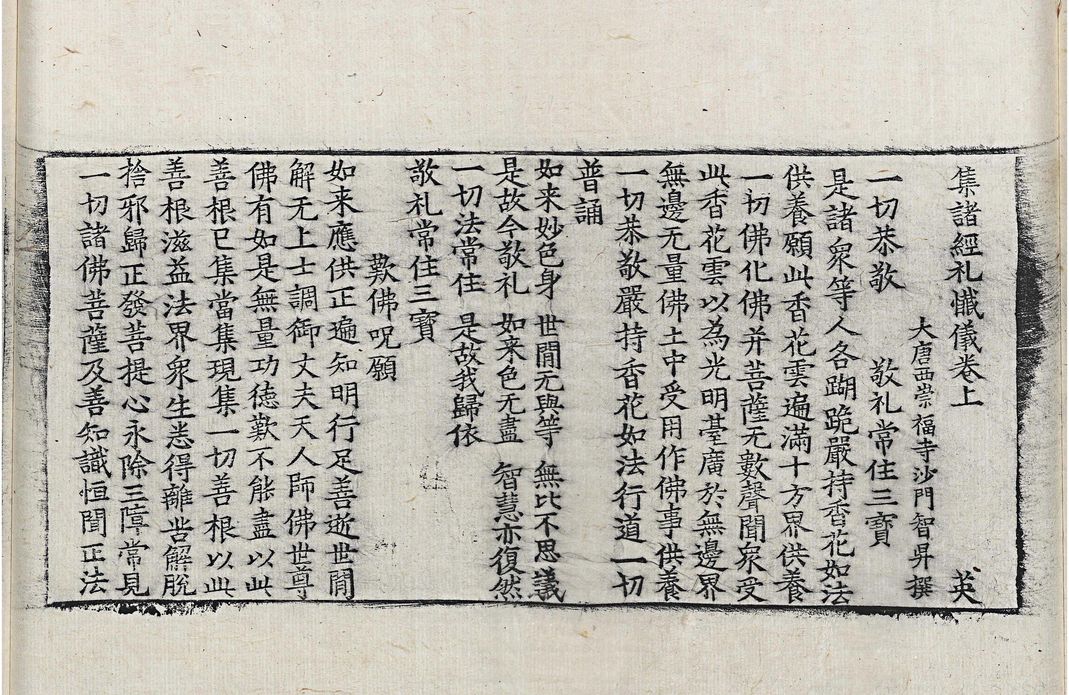 集諸經礼懺儀卷上 英
大唐西崇福寺沙門智昇撰
一切恭敬 敬礼常住三寶
是諸衆等人各蹦跪嚴持香花如法
供養願此香花雲遍滿十方界供養
一切佛化佛并菩薩无數聲聞衆受
此香花雲以為光明臺廣於無邊界
無邊无量佛土中受用作佛事供養
一切恭敬嚴持香花如法行道一切
普誦
如来妙色身 世間无與等 無比不思議
是故今敬礼 如来色无盡 智慧亦復然
一切法常住 是故我歸依
敬礼常住三寶
歎佛呪願
如来應供正遍知明行足善逝世間
解无上士調御丈夫天人師佛世尊
佛有如是無量功徳歎不能盡以此
善根已集當集現集一切善根以此
善根滋益法界衆生悉得離苦解脫
捨邪歸正發菩提心永除三障常見
一切諸佛菩薩及善知識恒聞正法